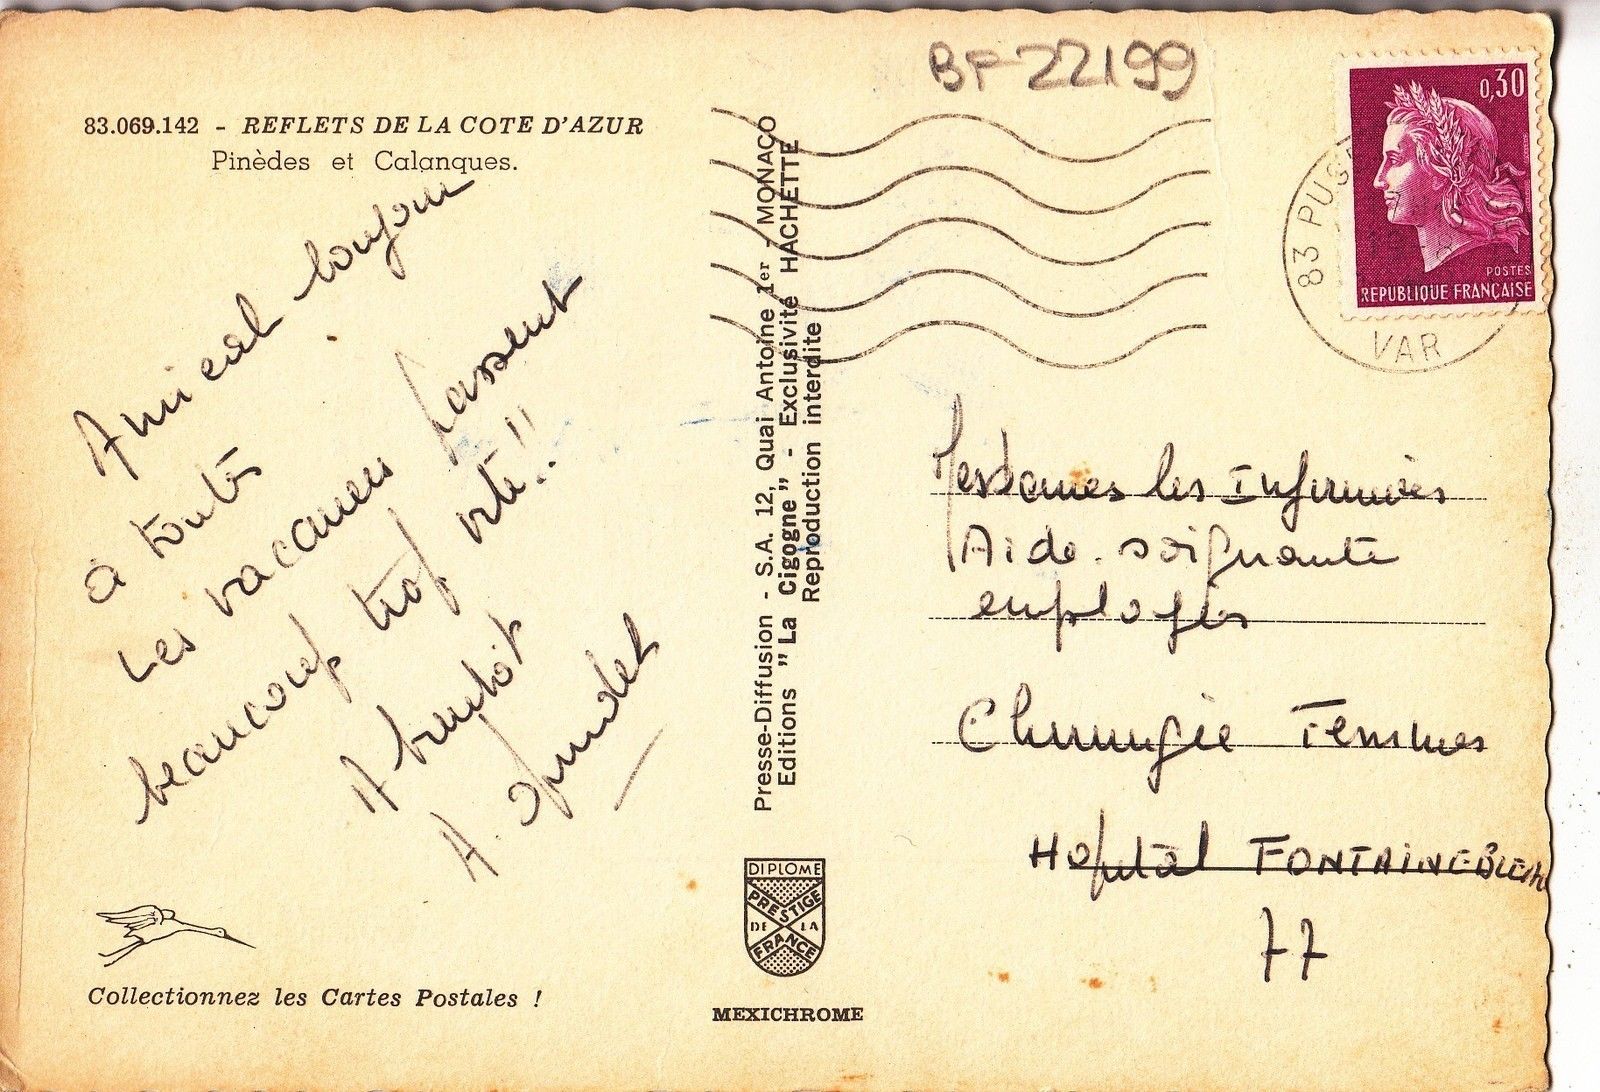 BF 22199
83.069.142 - REFLETS DE LA COTE D'AZUR
Pinèdes et Calanques.
Amical bonjour
à toutes
Les vacances passent
beaucoup trop vite!!
A bientôt
A.
Collectionnez les Cartes Postales !
Presse-Diffusion - S.A. 12, Quai Antoine 1er - MONACO
Editions "La Cigogne" - Exclusivité HACHETTE
Reproduction interdite
DIPLOME
PRESTIGE
DE LA
FRANCE
MEXICHROME
0,30
POSTES
REPUBLIQUE FRANÇAISE
83 PUG
VAR
Mesdames les Infirmières
Aide-soignante
employées
Chirurgie Femmes
Hopital FONTAINEBLEAU
77